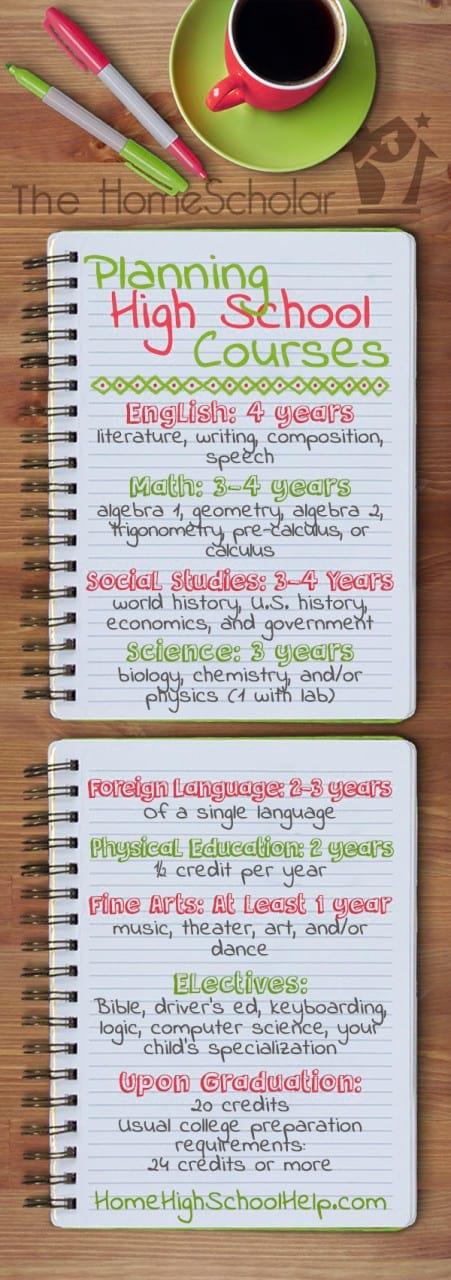 The HomeScholar
Planning
High School
Courses
English: 4 years
literature, writing, composition,
speech
Math: 3-4 years
algebra 1, geometry, algebra 2,
trigonometry, pre-calculus, or
calculus
Social Studies: 3-4 Years
world history, U.S. history,
economics, and government
Science: 3 years
biology, chemistry, and/or
physics (1 with lab)
Foreign Language: 2-3 years
of a single language
Physical Education: 2 years
½ credit per year
Fine Arts: At Least 1 year
music, theater, art, and/or
dance
ELectives:
Bible, driver's ed, keyboarding,
logic, computer science, your
child's specialization
Upon Graduation:
20 credits
Usual college preparation
requirements:
24 credits or more
HomeHighSchoolHelp.com